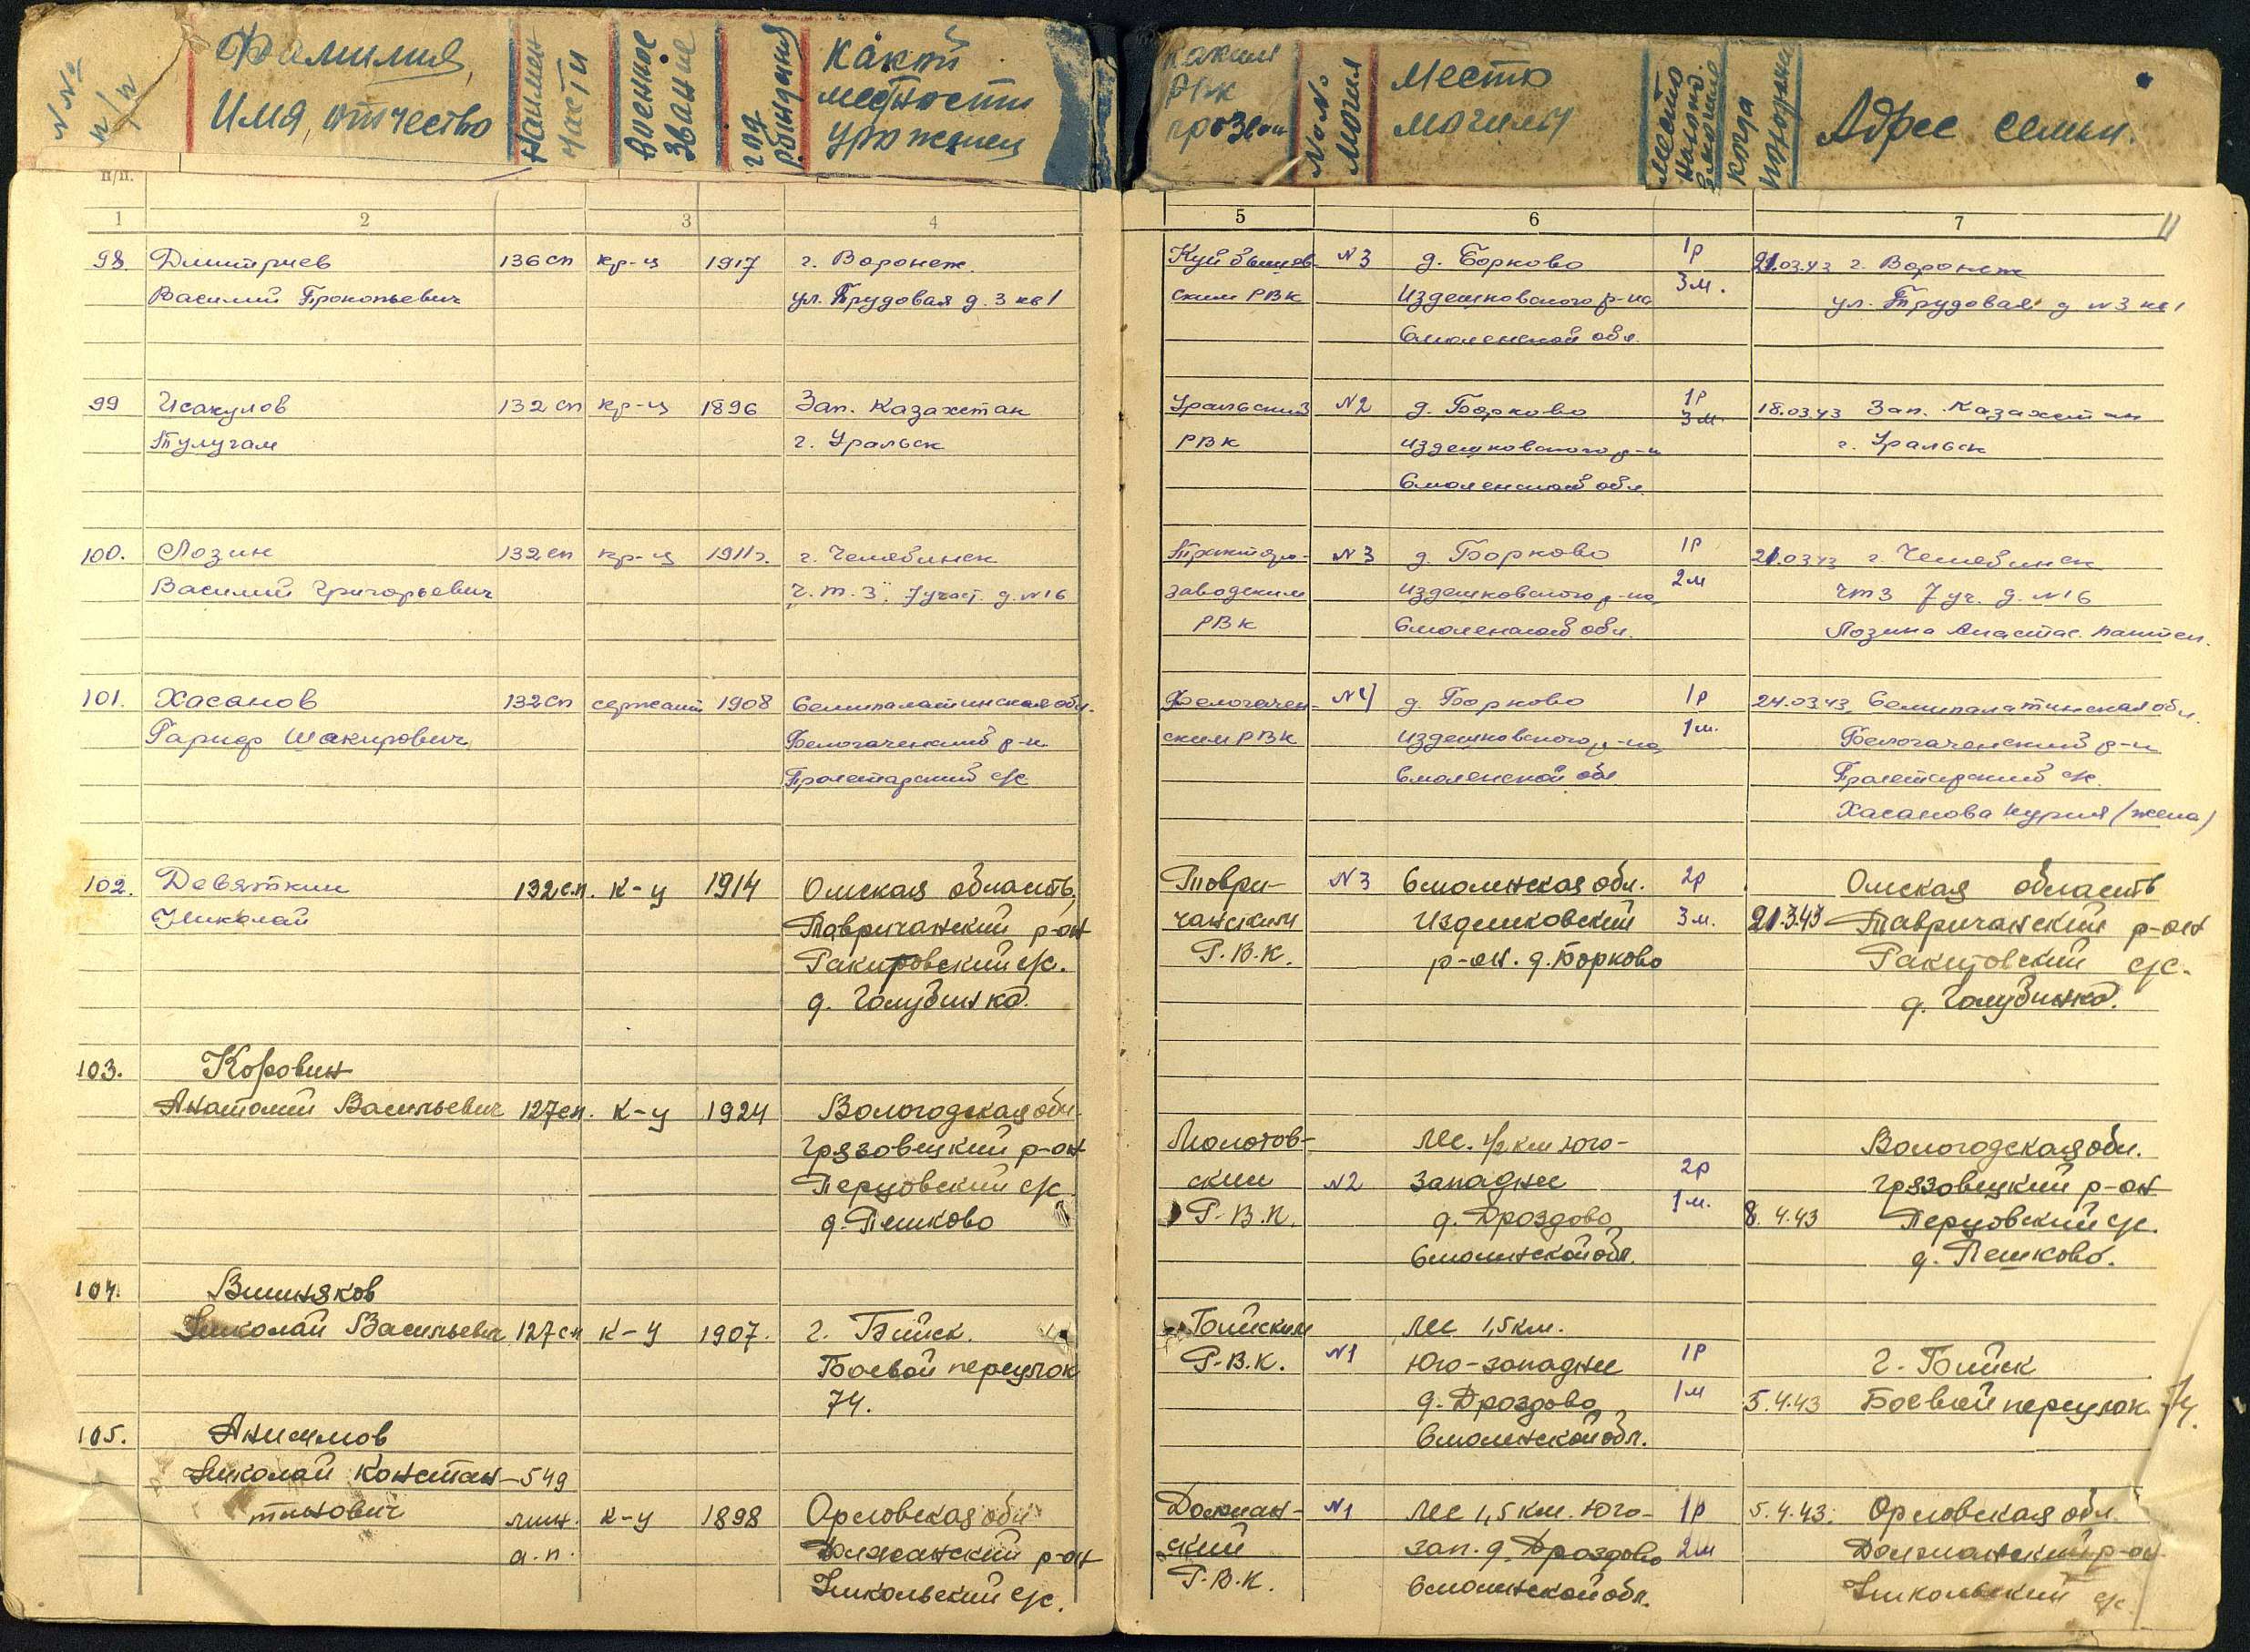 №№ п/п
Фамилия, Имя, отчество
Наимен части
Военное звание
год рождения
какой местности уроженец
каким РВК призван
№№ могил
Место могилы
место наход. в могиле
когда похоронен
Адрес семьи.
п/п.
1 2 3 4 5 6 7 11
98. Дмитриев 136 сп кр-ц 1917 г. Воронеж Куйбышев- №3 д. Борково 1р 21.03.43 г. Воронеж
Василий Прокопьевич ул. Трудовая д. 3 кв 1 ским РВК Издешковского р-на 3м. ул. Трудовая д. №3 кв 1
Смоленской обл.
99 Исакулов 132 сп кр-ц 1896 Зап. Казахстан Уральский №2 д. Борково 1р 18.03.43 Зап. Казахстан
Тулугам г. Уральск РВК Издешковского р-н 3м. г. Уральск
Смоленской обл.
100. Лозин 132 сп кр-ц 1911г. г. Челябинск Тракторо- №3 д. Борково 1р 21.03.43 г. Челябинск
Василий Григорьевич "Ч.Т.З." 7 участ. д. №16 заводским Издешковского р-на 2м ЧТЗ 7 уч. д. №16
РВК Смоленской обл. Лозина Анастас.
101. Хасанов 132 сп сержант 1908 Семипалатинская обл. Белогачен- №4 д. Борково 1р 24.03.43 Семипалатинская обл.
Гариф Шакирович Белогаченский р-н ским РВК Издешковского р-на 1м. Белогаченский р-н
Пролетарский с/с Смоленской обл Пролетарский с/с
Хасанова Нурия (жена)
102. Девяткин 132 с.п. к-ц 1914 Омская область, Таври- №3 Смоленская обл. 2р Омская область
Николай Тавричанский р-он чанским Издешковский 3м. 21.3.43 Тавричанский р-он
Ракитовский с/с. Р.В.К. р-он. д. Борково Ракитовский с/с.
д. Голубинка. д. Голубинка.
103. Коровин
Анатолий Васильевич 127 сп. к-ц 1924 Вологодская обл.
Грязовецкий р-он Молотов- Лес. 1/2 км юго- Вологодская обл.
Перцовский с/с ским №2 западнее 2р Грязовецкий р-он
д. Пешково Р.В.К. д. Дроздово 1м. 8.4.43 Перцовский с/с.
Смоленской обл. д. Пешково.
104. Вишняков
Николай Васильевич 127 сп к-ц 1907. г. Бийск. Бийским Лес 1,5 км.
Боевой переулок Р.В.К. №1 Юго-западнее 1р г. Бийск
74. д. Дроздово 1м 5.4.43 Боевой переулок 74.
105. Анисимов Смоленской обл.
Николай Констан- 549
тинович мин. к-ц 1898 Орловская обл Должан- №1 Лес 1,5 км. Юго- 1р 5.4.43. Орловская обл.
а.п. Должанский р-он ский зап. д. Дроздово 2м Должанский р-он
Никольский с/с. Р.В.К. Смоленской обл. Никольский с/с.